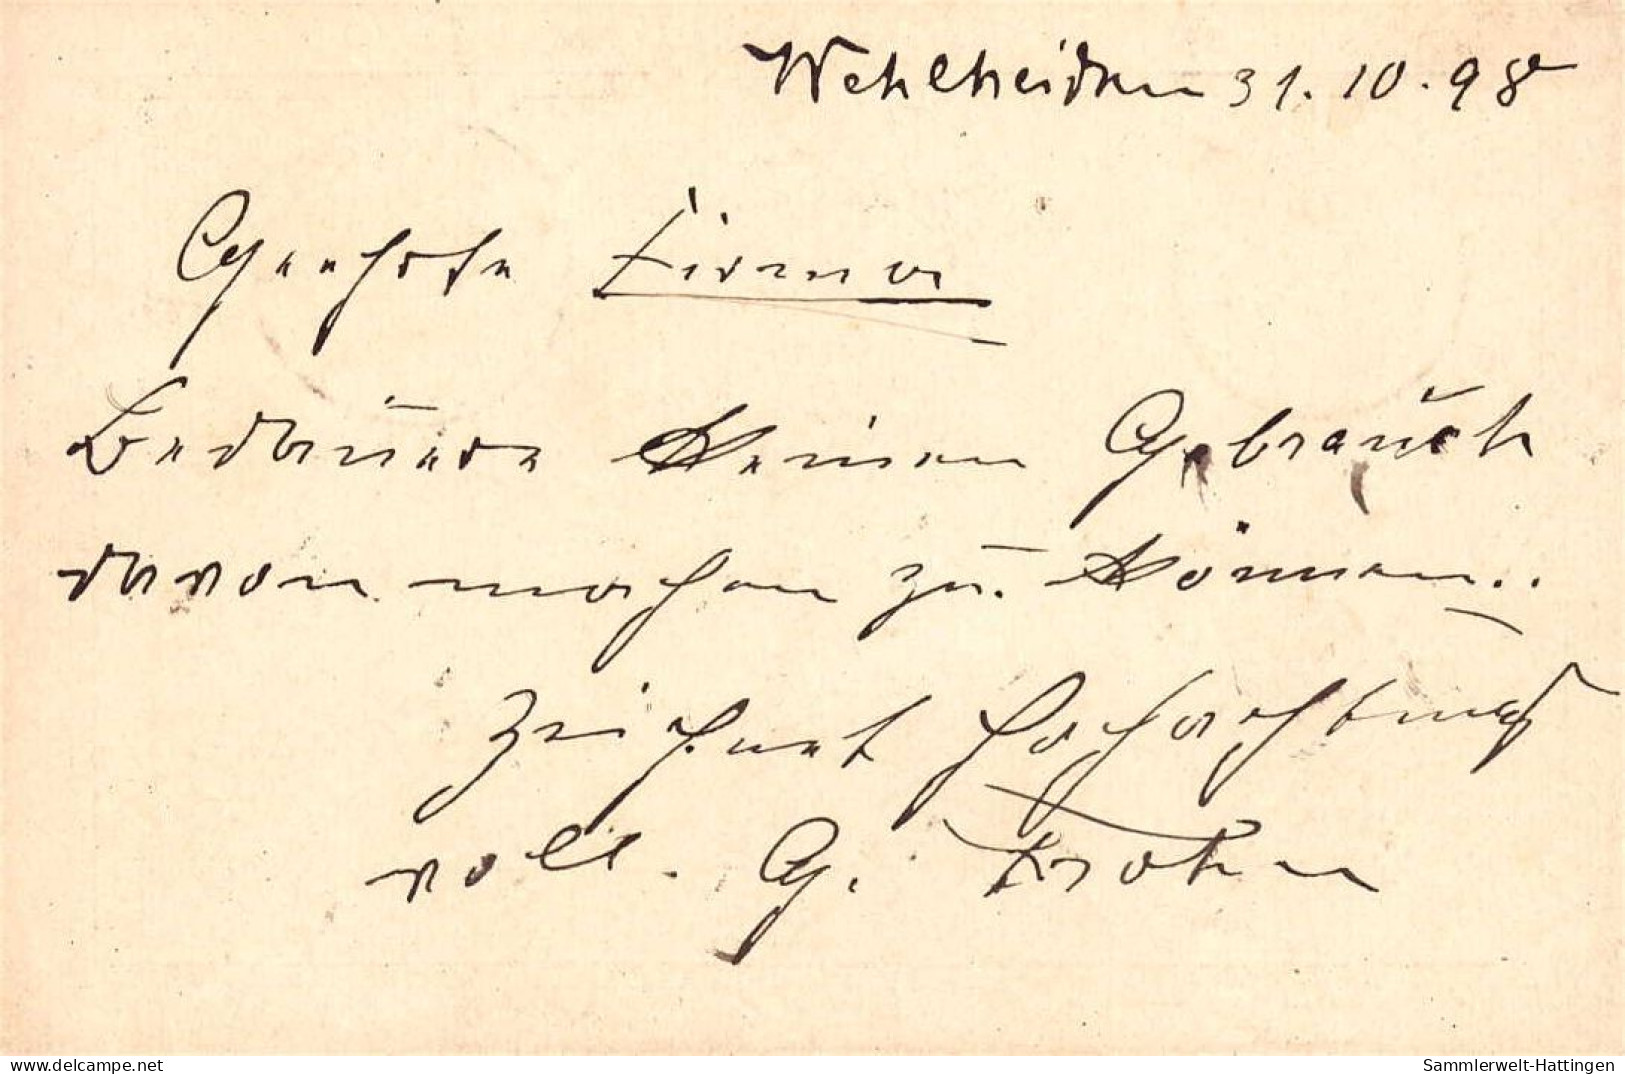 Wehlheiden 31.10.98
Geehrte Firma
Bedaure keinen Gebrauch
davon machen zu können..
Zeichnet Hochachtungs
voll. G. Frohn
delcampe.net
Sammlerwelt-Hattingen